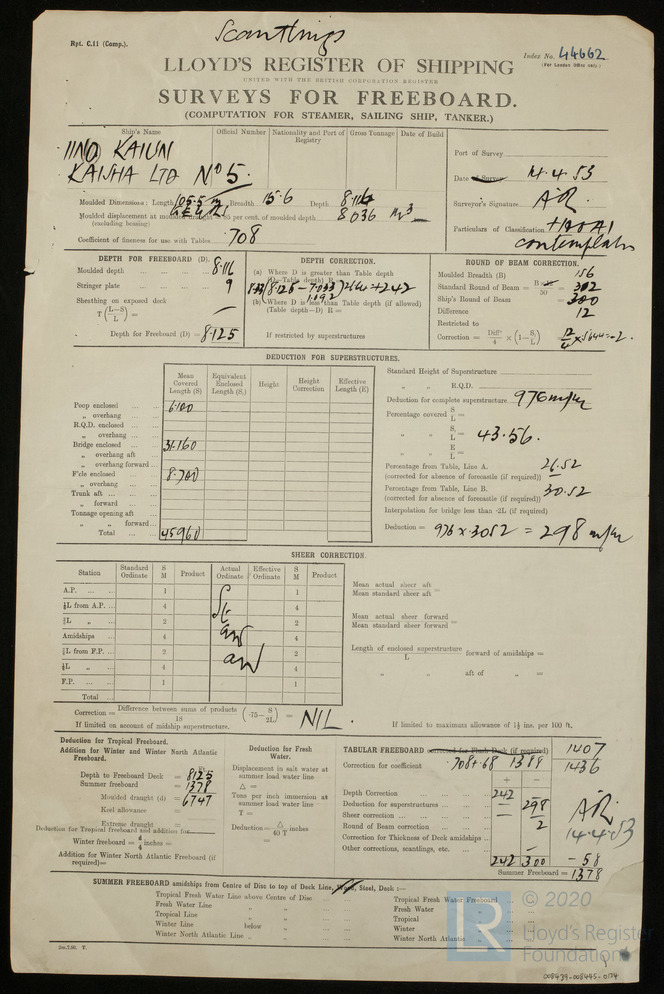 Scantlings
Rpt. C.11 (Comp.).
Index No. 44662
(For London Office only)
LLOYD'S REGISTER OF SHIPPING
UNITED WITH THE BRITISH CORPORATION REGISTER
SURVEYS FOR FREEBOARD.
(COMPUTATION FOR STEAMER, SAILING SHIP, TANKER.)
Ship's Name Official Number Nationality and Port of Registry Gross Tonnage Date of Build
IINO KAIUN
KAISHA LTD No 5.
Port of Survey
Date of Survey 14.4.53
Surveyor's Signature AR.
Particulars of Classification +100A1
contemplated
Moulded Dimensions: Length 105.5 m Breadth 15.6 Depth 8.116
Moulded displacement at moulded draught = 85 per cent. of moulded depth 8036 m3
(excluding bossing)
Coefficient of fineness for use with Tables .708
DEPTH FOR FREEBOARD (D).
Moulded depth 8.116
Stringer plate 9
Sheathing on exposed deck
T (L-S/L) =
Depth for Freeboard (D) = 8.125
DEPTH CORRECTION.
(a) Where D is greater than Table depth
(D-Table depth) R =
(8.125 - 7.033) = +242
1.092
(b) Where D is less than Table depth (if allowed)
(Table depth-D) R =
If restricted by superstructures
ROUND OF BEAM CORRECTION.
Moulded Breadth (B) 156
Standard Round of Beam = B×12/50 = 312
Ship's Round of Beam = 300
Difference 12
Restricted to
Correction = Diff/4 × (1-S/L) = 12/4 × .5644 = -2.
DEDUCTION FOR SUPERSTRUCTURES.
Mean Covered Length (S) Equivalent Enclosed Length (S₁) Height Height Correction Effective Length (E)
Poop enclosed 6.100
„ overhang
R.Q.D. enclosed
„ overhang
Bridge enclosed 31.160
„ overhang aft
„ overhang forward
F'cle enclosed 8.700
„ overhang
Trunk aft
„ forward
Tonnage opening aft
„ „ forward
Total 45960
Standard Height of Superstructure
„ „ R.Q.D.
Deduction for complete superstructure 976 m/m
Percentage covered S/L =
„ „ S₁/L = 43.56.
„ „ E/L =
Percentage from Table, Line A. 26.52
(corrected for absence of forecastle (if required))
Percentage from Table, Line B. 30.52
(corrected for absence of forecastle (if required))
Interpolation for bridge less than ·2L (if required)
Deduction = 976 x 3052 = 298 m/m
SHEER CORRECTION.
Station Standard Ordinate S M Product Actual Ordinate Effective Ordinate S M Product
A.P. 1 1
⅙L from A.P. 4 4
⅓L „ 2 2
Amidships 4 4
⅓L from F.P. 2 2
⅙L „ 4 4
F.P. 1 1
Total
Mean actual sheer aft
Mean standard sheer aft =
Mean actual sheer forward
Mean standard sheer forward =
Length of enclosed superstructure forward of amidships =
L
„ „ aft of „ =
Correction = Difference between sums of products / 18 (·75 - S/2L) = NIL.
If limited on account of midship superstructure.
If limited to maximum allowance of 1½ ins. per 100 ft.
Deduction for Tropical Freeboard.
Addition for Winter and Winter North Atlantic Freeboard.
Depth to Freeboard Deck = 8125
Summer freeboard = 1378
Moulded draught (d) = 6747
Keel allowance
Extreme draught
Deduction for Tropical freeboard and addition for
Winter freeboard = d/4 inches =
Addition for Winter North Atlantic Freeboard (if required)=
Deduction for Fresh Water.
Displacement in salt water at summer load water line
△ =
Tons per inch immersion at summer load water line
T =
Deduction = △/40 T inches
=
TABULAR FREEBOARD corrected for Flush Deck (if required) 1407
Correction for coefficient .708+.68 / 1.388 1436
+ -
Depth Correction 242
Deduction for superstructures — 298
Sheer correction —
Round of Beam correction 2
Correction for Thickness of Deck amidships
Other corrections, scantlings, etc. —
242 300 - 58
Summer Freeboard = 1378
AR.
14.4.53
SUMMER FREEBOARD amidships from Centre of Disc to top of Deck Line, Wood, Steel, Deck :—
Tropical Fresh Water Line above Centre of Disc
Fresh Water Line „ „
Tropical Line „ „
Winter Line below „
Winter North Atlantic Line „ „
Tropical Fresh Water Freeboard
Fresh Water „
Tropical „
Winter „
Winter North Atlantic „
© 2020
LR
Lloyd's Register
Foundation
008439-008445-0134